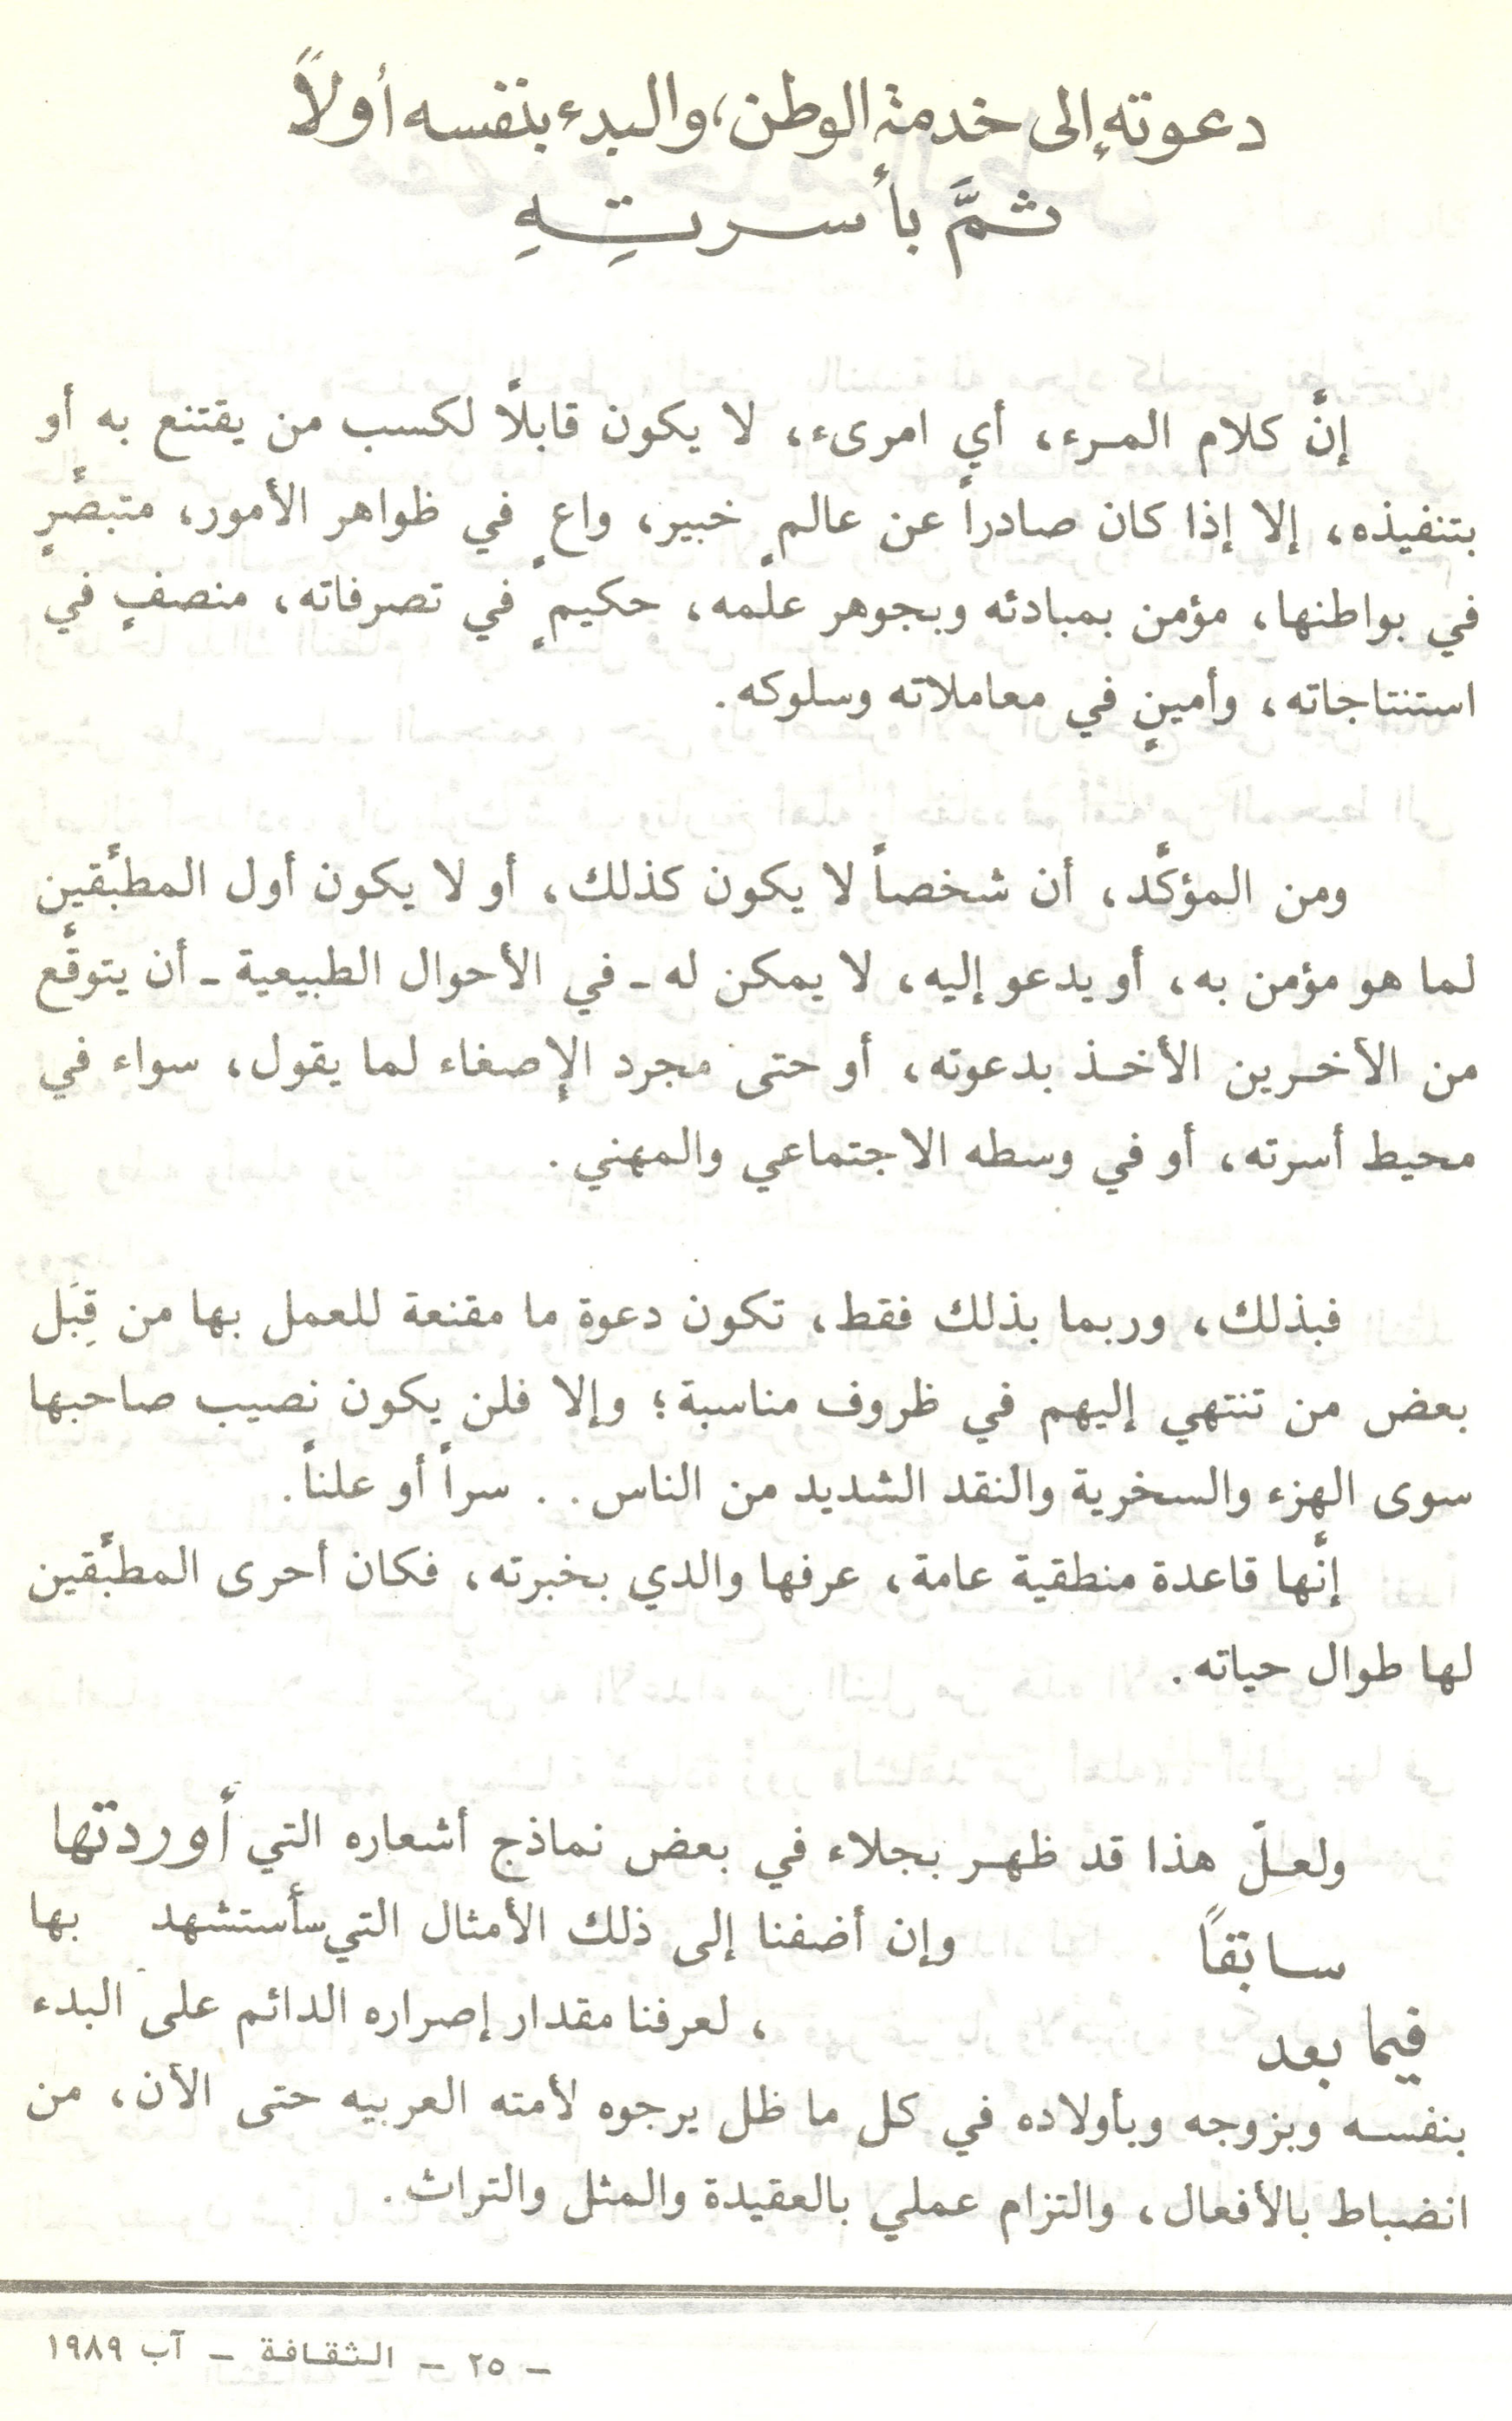 دعوته إلى خدمة الوطن، والبدء بنفسه أولاً
ثمَّ بأسرتِهِ
إنَّ كلام المرء، أي امرىء، لا يكون قابلاً لكسب من يقتنع به أو
بتنفيذه، إلا إذا كان صادراً عن عالمٍ خبير، واعٍ في ظواهر الأمور، متبصِّرٍ
في بواطنها، مؤمن بمبادئه وبجوهر علمه، حكيمٍ في تصرفاته، منصفٍ في
استنتاجاته، وأمينٍ في معاملاته وسلوكه.
ومن المؤكَّد، أن شخصاً لا يكون كذلك، أو لا يكون أول المطبِّقين
لما هو مؤمن به، أو يدعو إليه، لا يمكن له - في الأحوال الطبيعية - أن يتوقَّع
من الأخرين الأخذ بدعوته، أو حتى مجرد الإصغاء لما يقول، سواء في
محيط أسرته، أو في وسطه الاجتماعي والمهني.
فبذلك، وربما بذلك فقط، تكون دعوة ما مقنعة للعمل بها من قِبَل
بعض من تنتهي إليهم في ظروف مناسبة؛ وإلا فلن يكون نصيب صاحبها
سوى الهزء والسخرية والنقد الشديد من الناس.. سراً أو علناً.
إنَّها قاعدة منطقية عامة، عرفها والدي بخبرته، فكان أحرى المطبِّقين
لها طوال حياته.
ولعلّ هذا قد ظهر بجلاء في بعض نماذج أشعاره التي أوردتها
سابقاً وإن أضفنا إلى ذلك الأمثال التي سأستشهد بها
فيما بعد ، لعرفنا مقدار إصراره الدائم على البدء
بنفسه وبزوجه وبأولاده في كل ما ظل يرجوه لأمته العربيه حتى الأن، من
انضباط بالأفعال، والتزام عملي بالعقيدة والمثل والتراث.
- ٢٥ - الثقافة - آب ١٩٨٩